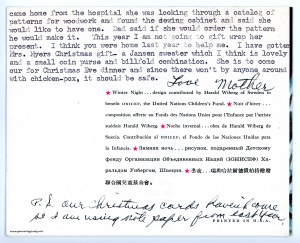 came home from the hospital she was looking through a catalog of
patterns for woodwork and found the sewing cabinet and said she
would like to have one. Dad said if she would order the pattern
he would make it. This year I am not going to gift wrap her
present. I think you were home last year to help me. I have gotten
Mrs. Myers Christmas gift- a Jansen sweater which I think is lovely
and a small coin purse and billfold combination. She is to come
our for Christmas Eve dinner and since there won't by anyone around
with chicken-pox, it should be safe.
Love Mother
★ Winter Night... design contributed by Harald Wiberg of Sweden to
benefit UNICEF, the United Nations Children's Fund. ★ Nuit d'hiver...
composition offerte au Fonds des Nations Unies pour l'Enfance par l'artiste
suédois Harald Wiberg. ★ Noche invernal... obra de Harald Wiberg de
Suecia. Contribución al UNICEF, el Fondo de las Naciones Unidas para
la Infancia. ★ Зимняя ночь... рисунок, подаренный Детскому
фонду Организации Объединенных Наций (ЮНИСЕФ) Ха-
ральдом Вибергом, Швеция. ★ 冬夜
聯合國兒童基金會。
P.S. our Christmas cards haven't come
so I am using note paper from last year.
PRINTED IN U.S.A.